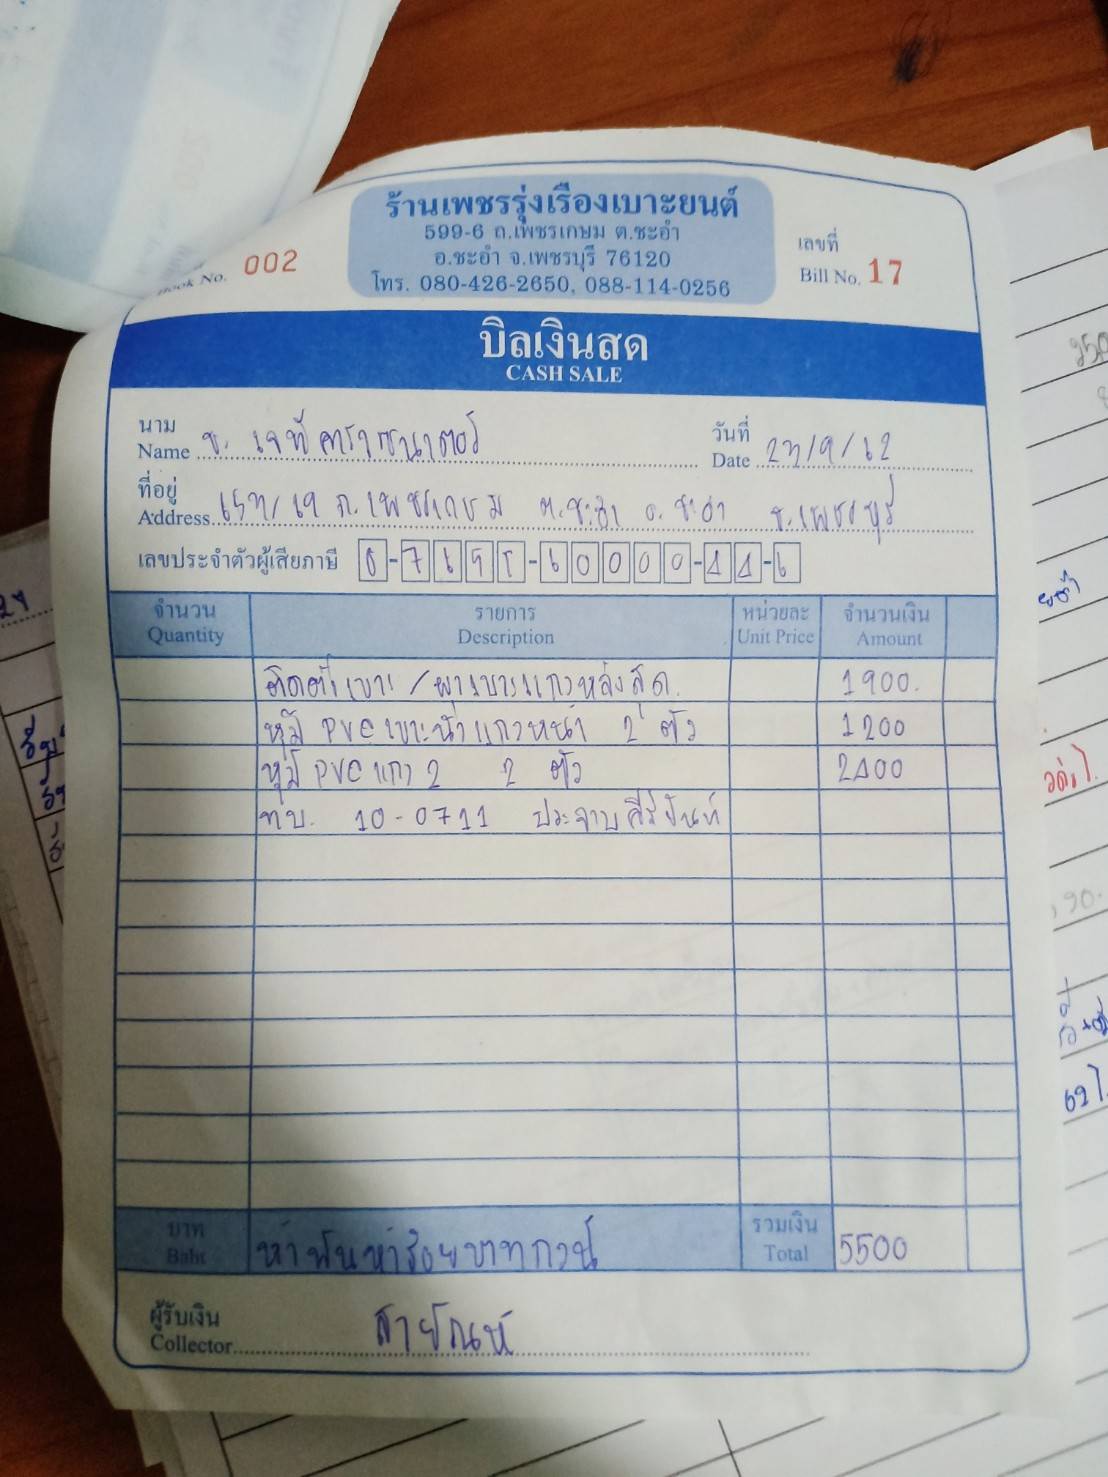 ร้านเพชรรุ่งเรืองเบาะยนต์
599-6 ถ.เพชรเกษม ต.ชะอำ
อ.ชะอำ จ.เพชรบุรี 76120
โทร. 080-426-2650, 088-114-0256
No. 002
เลขที่
Bill No. 17
บิลเงินสด
CASH SALE
นาม
Name
วันที่
Date 27/9/62
ที่อยู่
Address ถ.เพชรเกษม ต.ชะอำ อ.ชะอำ จ.เพชรบุรี
เลขประจำตัวผู้เสียภาษี
จำนวน รายการ หน่วยละ จำนวนเงิน
Quantity Description Unit Price Amount
ติดตั้งเบาะ / 1900.
หุ้ม PVC เบาะ แถวหน้า 2 ตัว 1200
หุ้ม PVC แถว 2 2 ตัว 2400
ทบ. 10-0711 ประจวบคีรีขันท์
บาท
Baht ห้าพันห้าร้อยบาทถวน์
รวมเงิน
Total 5500
ผู้รับเงิน
Collector สายัณห์